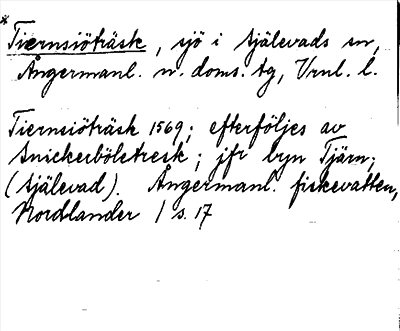 * Tiernsiöträsk, sjö i Själevads sn,
Ångermanl. n. doms. tg, Vrnl. l.
Tiernsiöträsk 1569; efterföljes av
Snickerböletresk; jfr byn Tjärn;
(Själevad). Ångermanl. fiskevatten,
Nordlander 1 s. 17